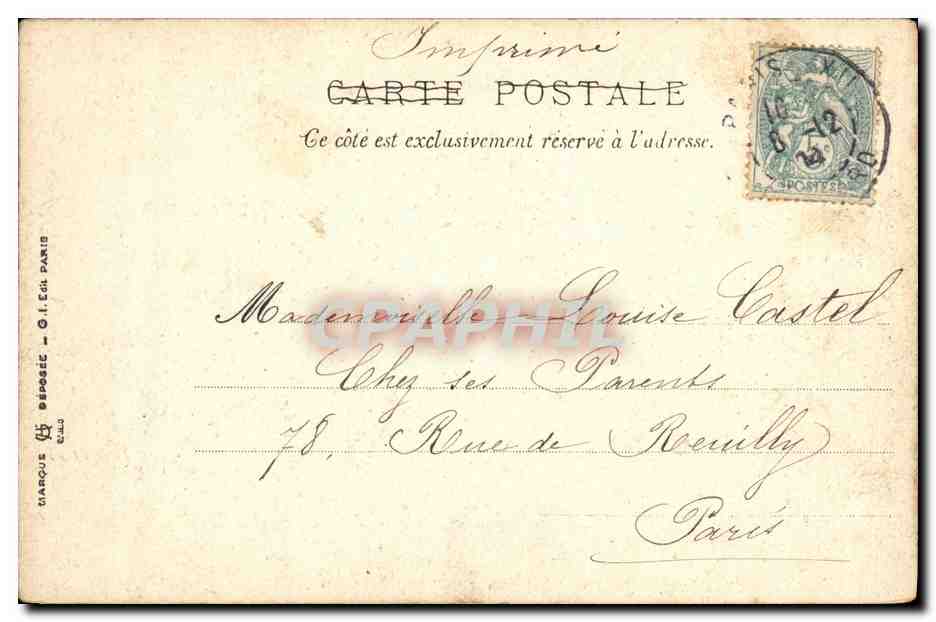 Imprimé
CARTE POSTALE
Ce côté est exclusivement réservé à l'adresse.
5c
POSTES
12
MARQUE DÉPOSÉE — G. I. Edit PARIS
CPAPHIL
Mademoiselle Louise Castel
Chez ses Parents
78, Rue de Reuilly
Paris